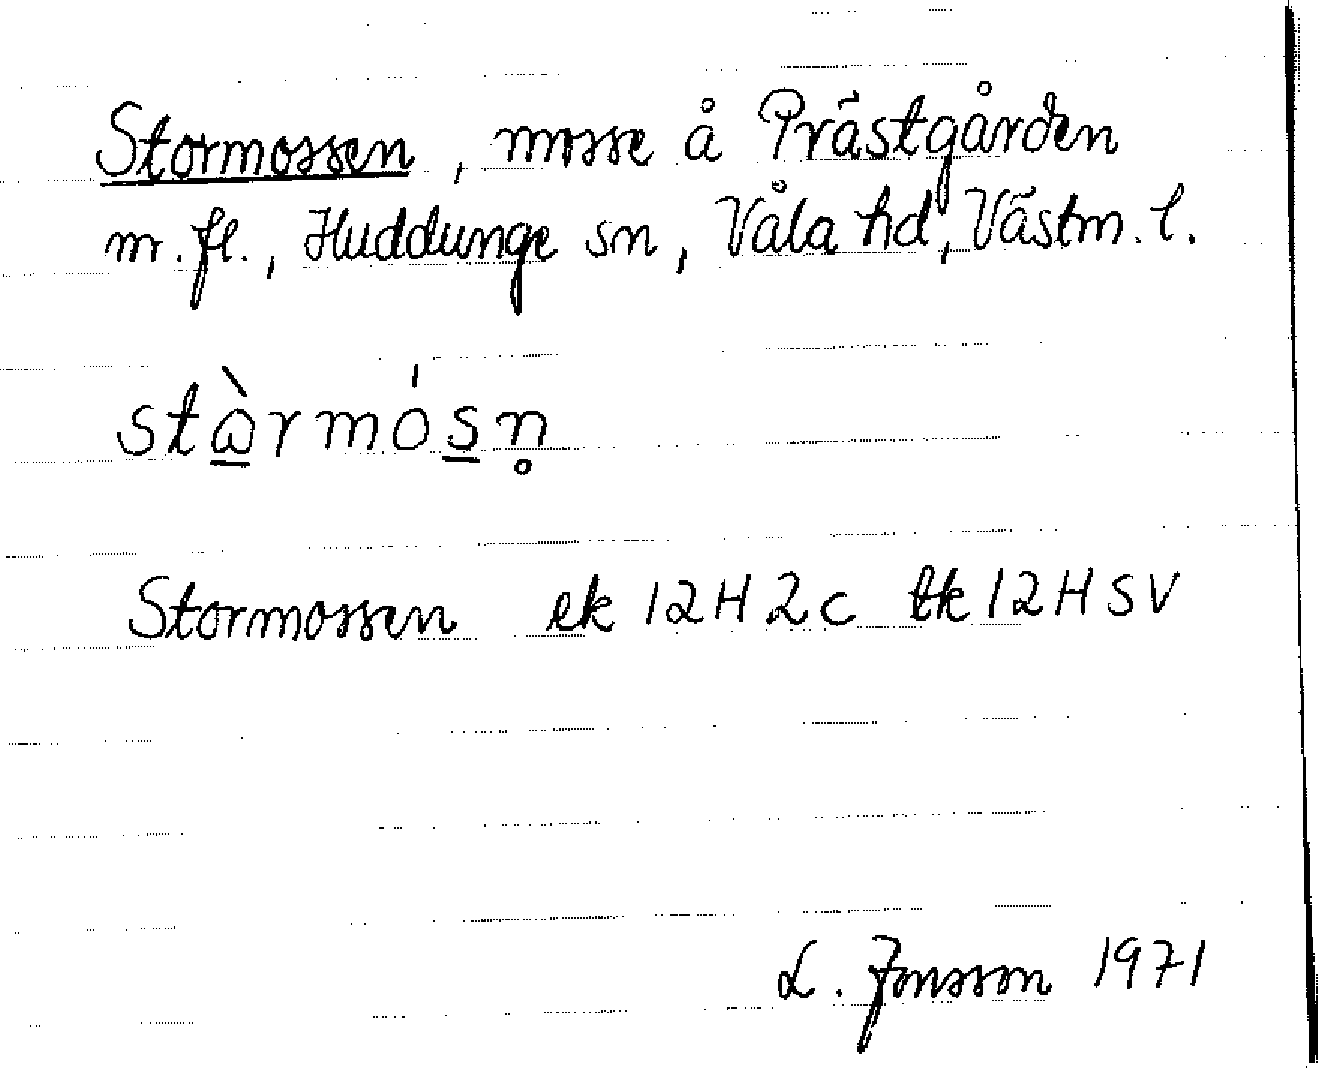 Stormossen, mosse å Prästgården
m.fl., Huddunge sn, Våla hd, Västm. l.
stɷ̀rmósṇ
Stormossen ek 12H2c tk 12HSV
L. Jonsson 1971